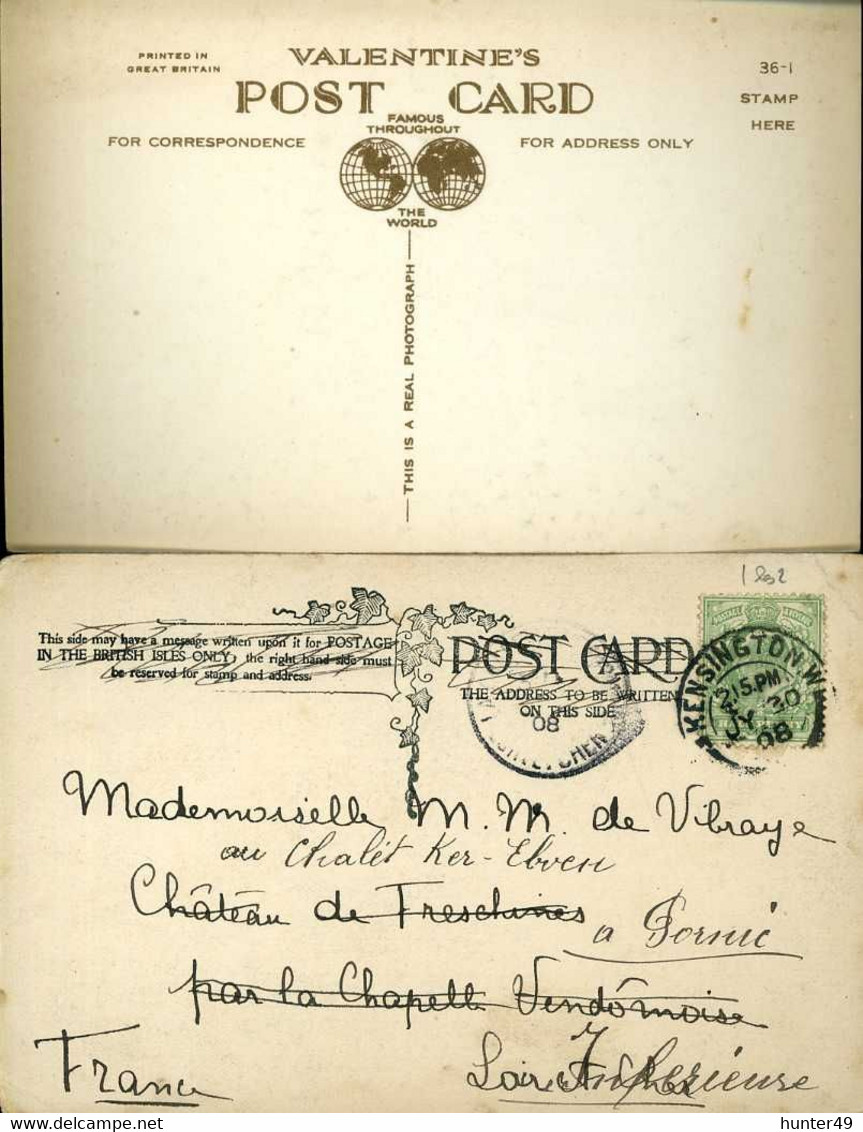 PRINTED IN
GREAT BRITAIN
VALENTINE'S
POST CARD
36-1
STAMP
HERE
FOR CORRESPONDENCE
FAMOUS
THROUGHOUT
THE
WORLD
FOR ADDRESS ONLY
THIS IS A REAL PHOTOGRAPH
This side may have a message written upon it for POSTAGE
IN THE BRITISH ISLES ONLY; the right hand side must
be reserved for stamp and address.
POST CARD
THE ADDRESS TO BE WRITTEN
ON THIS SIDE
08
KENSINGTON.W
2 15.PM
JY 20
08
Mademoiselle M. M. de Vibraye
au Chalêt Ker-Eben
Château de Freschines
a Pornic
par la Chapelle Vendômoise
France
Loire Inferieure
hunter49